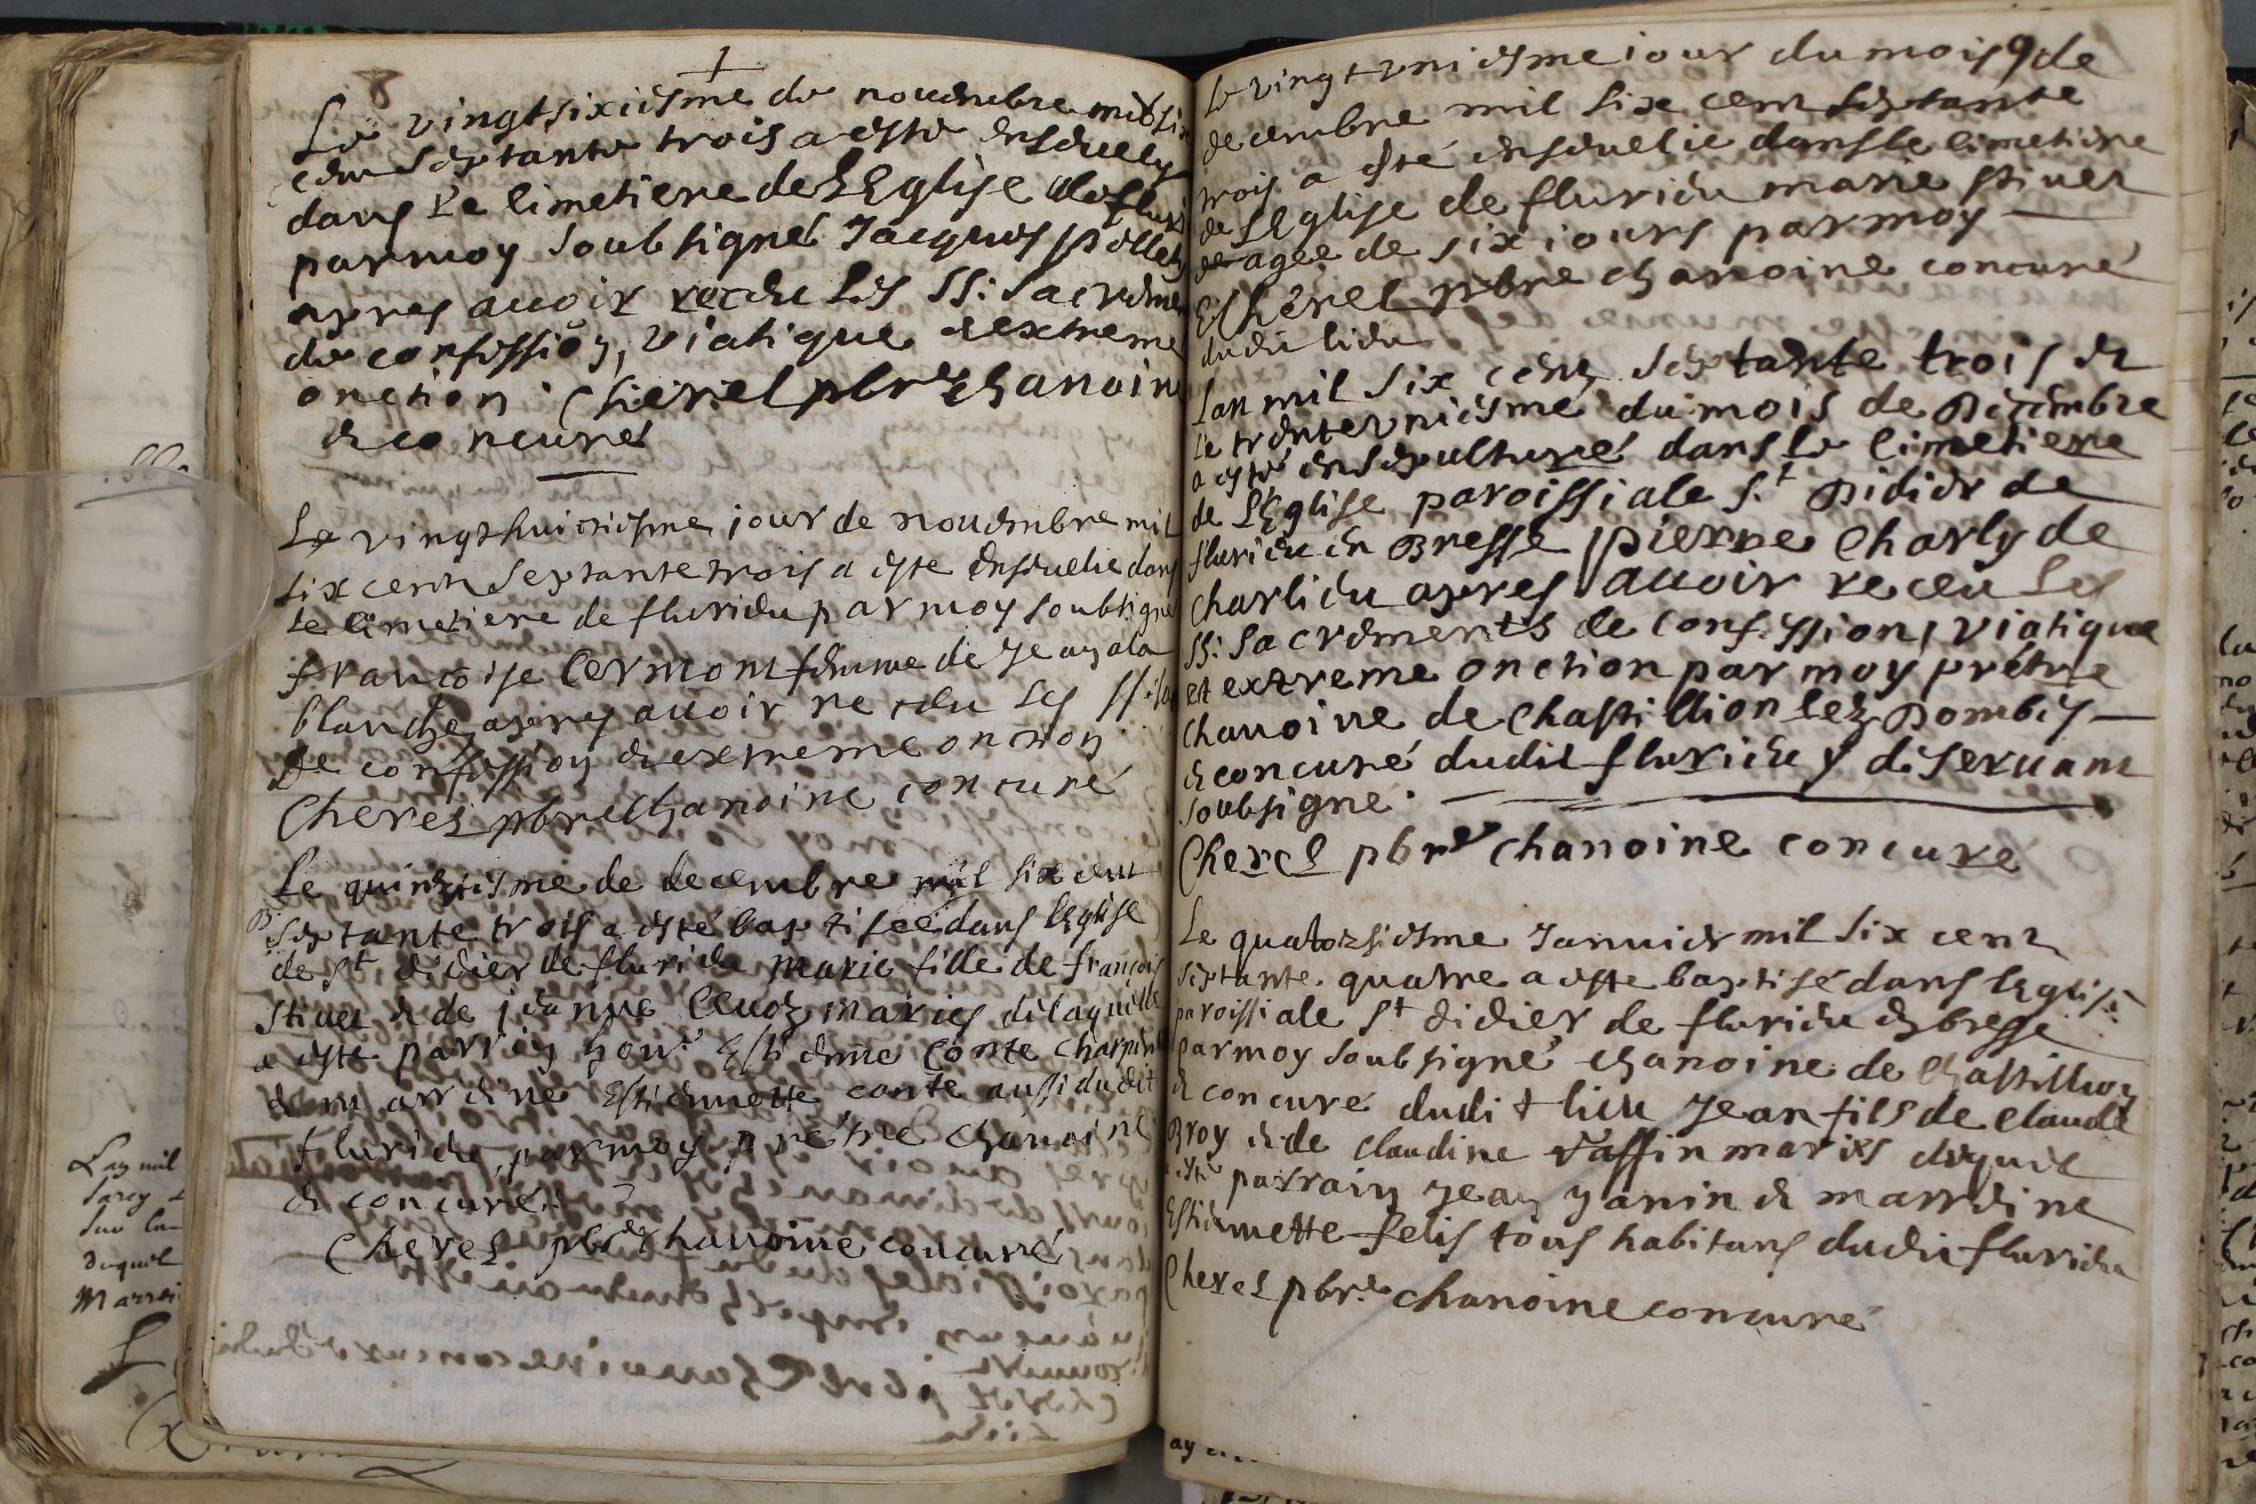 8
Le vingtsixiesme de nouembre mil six
cent septante trois a esté enseuely
dans le cimetiere de L'Eglise de fluri
par moy soubsigné Jacques pillet
apres auoir receu Les SS: Sacremen
de confession, viatique et extreme
onction Cherel pbre chanoin
et concuré
Le vingthuictiesme jour de nouembre mil
six cent septante trois a este enseuelie dans
le cimetiere de flurieu par moy soubsigné
françoise Cermont femme de Jean ala
blanche apres auoir receu Les SS: sa
de confession et extreme onction
Cherel pbre chanoine concuré
Le quinziesme de decembre mil six cent
B: septante trois a esté baptisee dans l'Eglise
de St didier de flurieu marie fille de françois
Stiuen et de jeanne Cuoz mariez de laquelle
a esté parrin hon: Estienne Conte charpen
et marrine Estiennette conte aussi dudit
flurieu, par moy prétre chanoine
et concuré
Cherel pbre chanoine concuré
9
Le vingt vniesme iour du mois de
decembre mil six cent septante
trois a esté enseuelie dans le cimetiere
de L'Eglise de flurieu marie stiuen
agée de six iours par moy
Cherel pbre chanoine concuré
dudit lieu
Lan mil six cent septante trois et
le trentevniesme du mois de Décembre
a esté ensepulturé dans le cimetiere
de L'Eglise paroissiale St Didier de
flurieu en Bresse pierre Charly de
Charlieu apres auoir receu Les
SS: Sacrements de Confession, viatique
et extreme onction par moy prétre
chanoine de Chastillion lez Dombes
et concuré dudit flurieu y deseruant
soubsigné.
Cherel pbre chanoine concuré
Le quatorsiesme Januier mil six cent
septante quatre a este baptisé dans l'Eglise
paroissiale St didier de flurieu en bresse
par moy soubsigné chanoine de Chastillion
et concuré dudit lieu Jean fils de claude
Broy et de claudine raffin mariés duquel
a esté parrain Jean Janin et marrine
Estiennette felis tous habitans dudit flurieu
Cherel pbre chanoine concuré
Lan mil